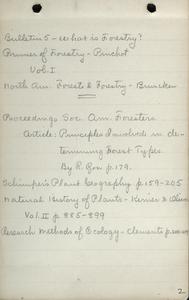 Bulletin 5 - What is Forestry?
Primer of Forestry - Pinchot
Vol. I
North Am. Forests & Forestry - Bruncken
Proceedings Soc. Am. Foresters
Article: Principles Involved in de-
termining Forest Types.
By R. Zon p. 179.
Schimper's Plant Geography p. 159-205
Natural History of Plants - Kerner &
Vol. II p 885-899
Research Methods of Ecology - Clements
2